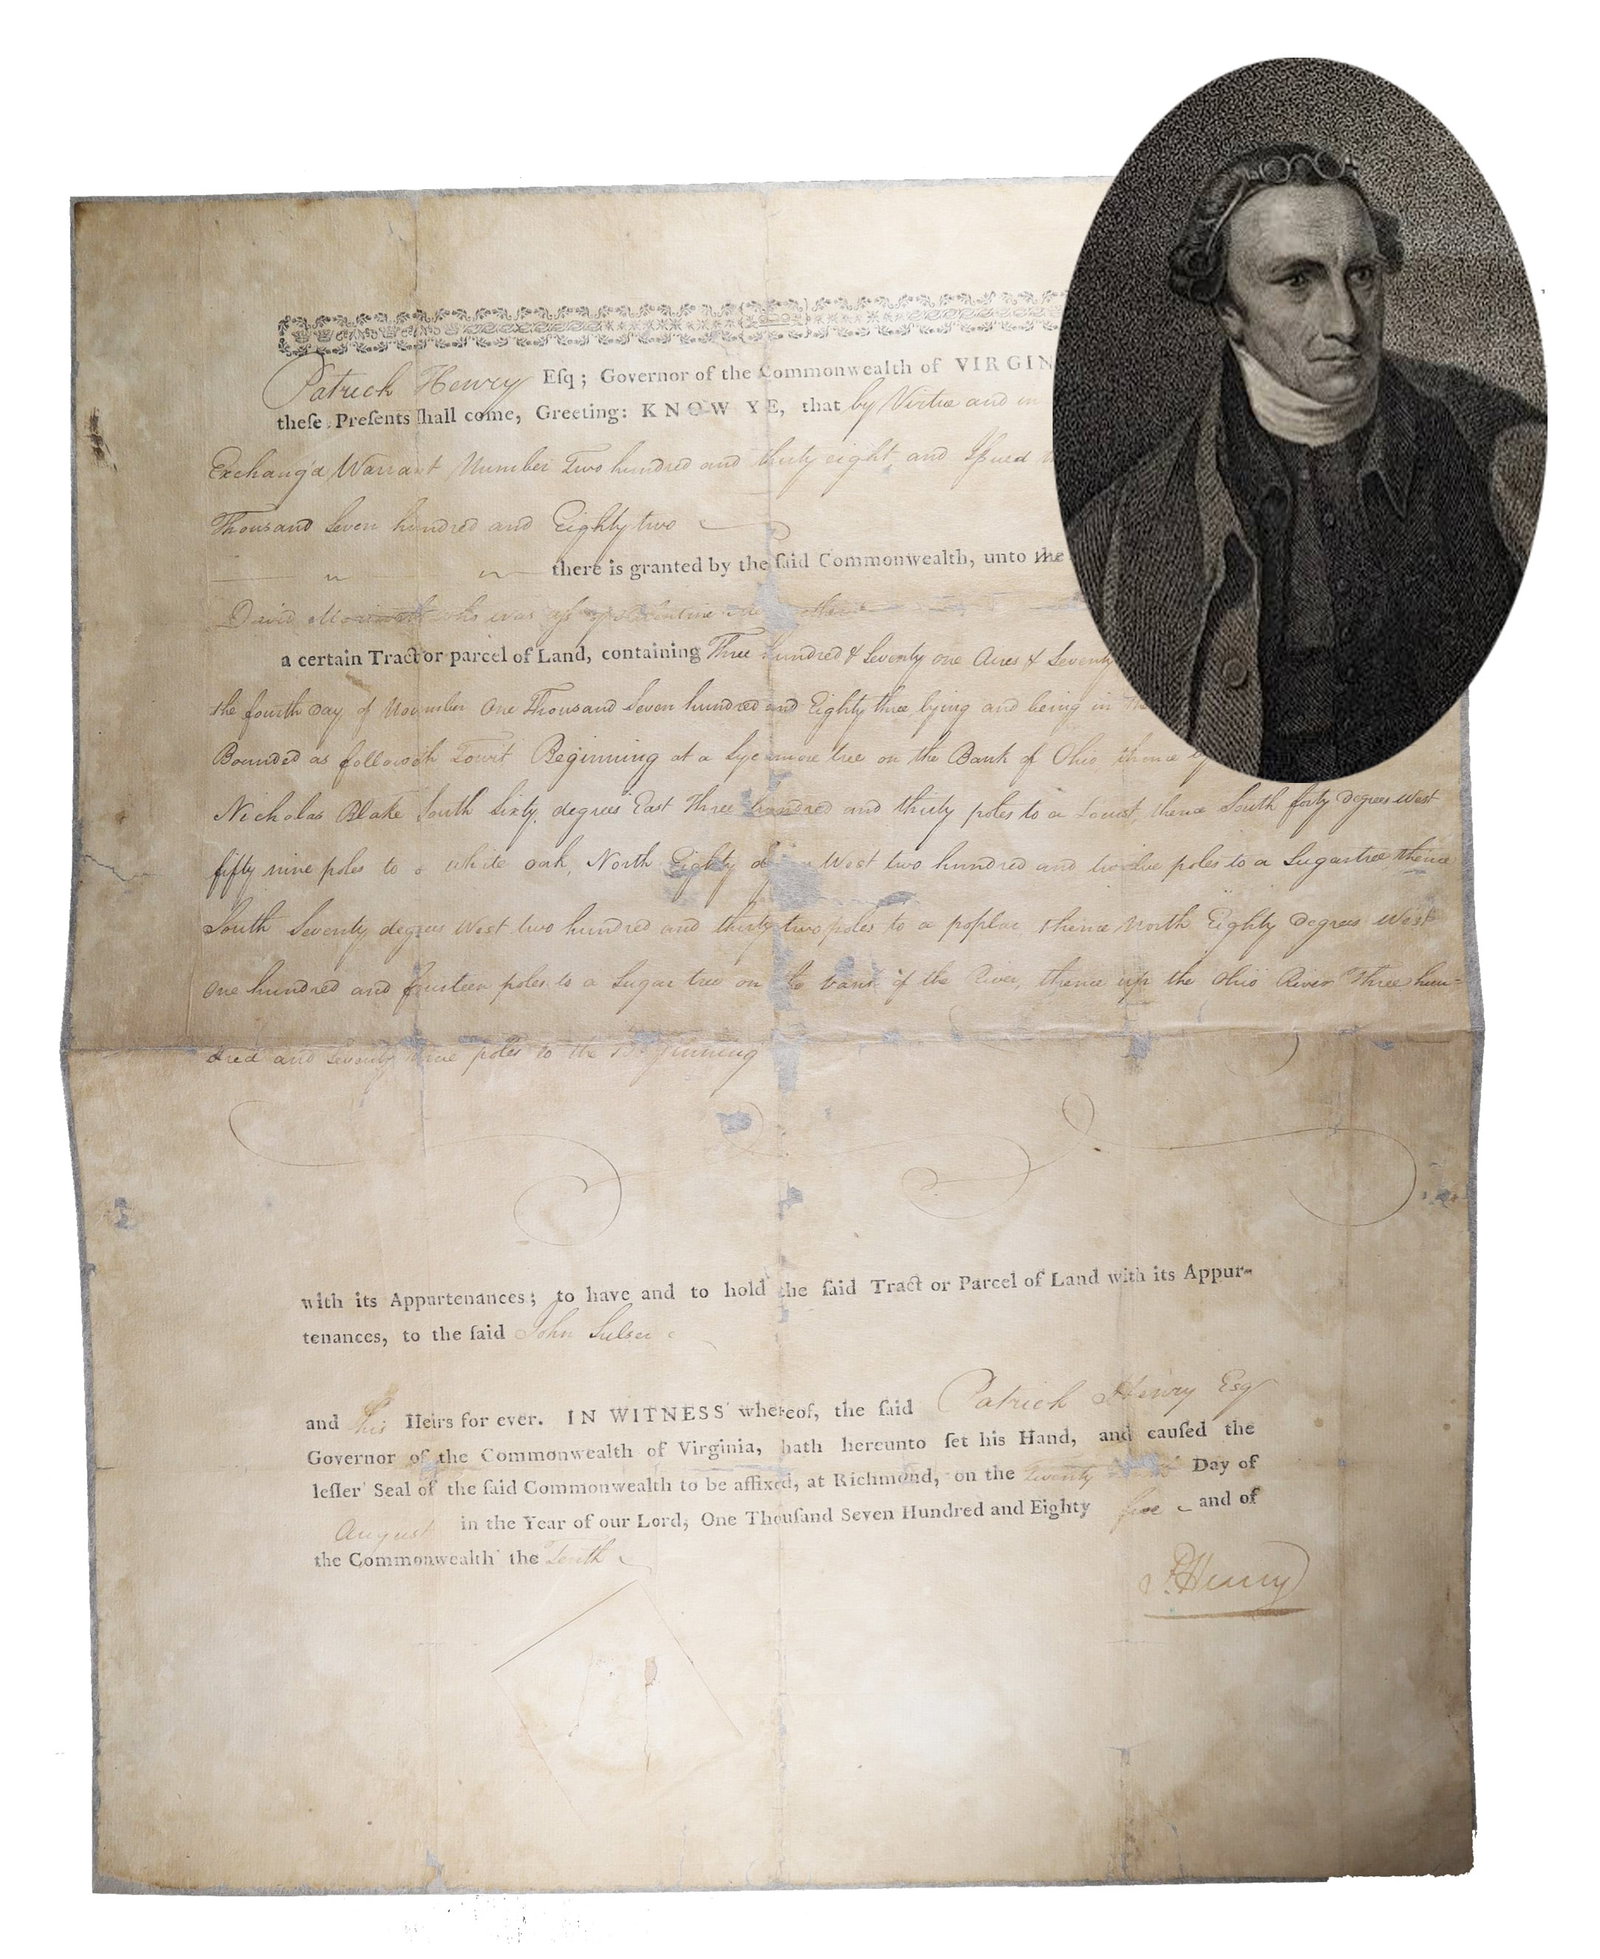 Patrick Henry Esq; Governor of the Commonwealth of VIRGIN
theſe Preſents ſhall come, Greeting: KNOW YE, that by Virtue and in
Exchang'd Warrant Number Two hundred and thirty eight and Iſsued
Thousand Seven hundred and Eighty two
there is granted by the ſaid Commonwealth, unto the
David who was
a certain Tract or parcel of Land, containing Three hundred & Seventy one Acres & Seventy
the fourth day of November One Thousand Seven hundred and Eighty three, lying and being in the
Bounded as followeth Towit Beginning at a Sycamore tree on the Bank of Ohio, thence
Nicholas Blake South Sixty degrees East Three hundred and thirty poles to a Locust, thence South forty degrees West
fifty nine poles to a white oak, North Eighty West two hundred and twelve poles to a Sugartree thence
South Seventy degrees West two hundred and thirty two poles to a poplar, thence North Eighty degrees West
One hundred and fourteen poles to a Sugar tree on the bank of the River, thence up the Ohio River Three hun-
dred and Seventy three poles to the Beginning
with its Appurtenances; to have and to hold the ſaid Tract or Parcel of Land with its Appur-
tenances, to the ſaid John Sulser
and his Heirs for ever. IN WITNESS whereof, the ſaid Patrick Henry Esqr
Governor of the Commonwealth of Virginia, hath hereunto ſet his Hand, and cauſed the
leſſer Seal of the ſaid Commonwealth to be affixed, at Richmond, on the twenty Day of
August in the Year of our Lord, One Thouſand Seven Hundred and Eighty five and of
the Commonwealth the Tenth
P. Henry